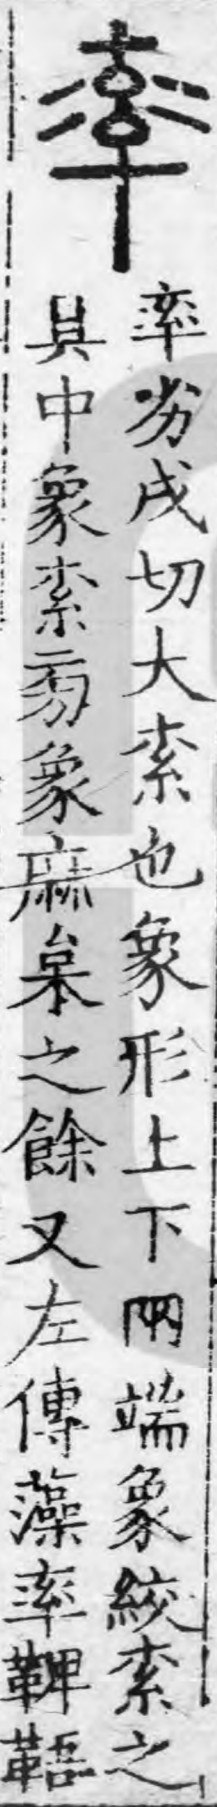 率
率劣戌切大索也象形上下兩端象絞索之
具中象索㫄象麻枲之餘又左傳藻率鞞鞛